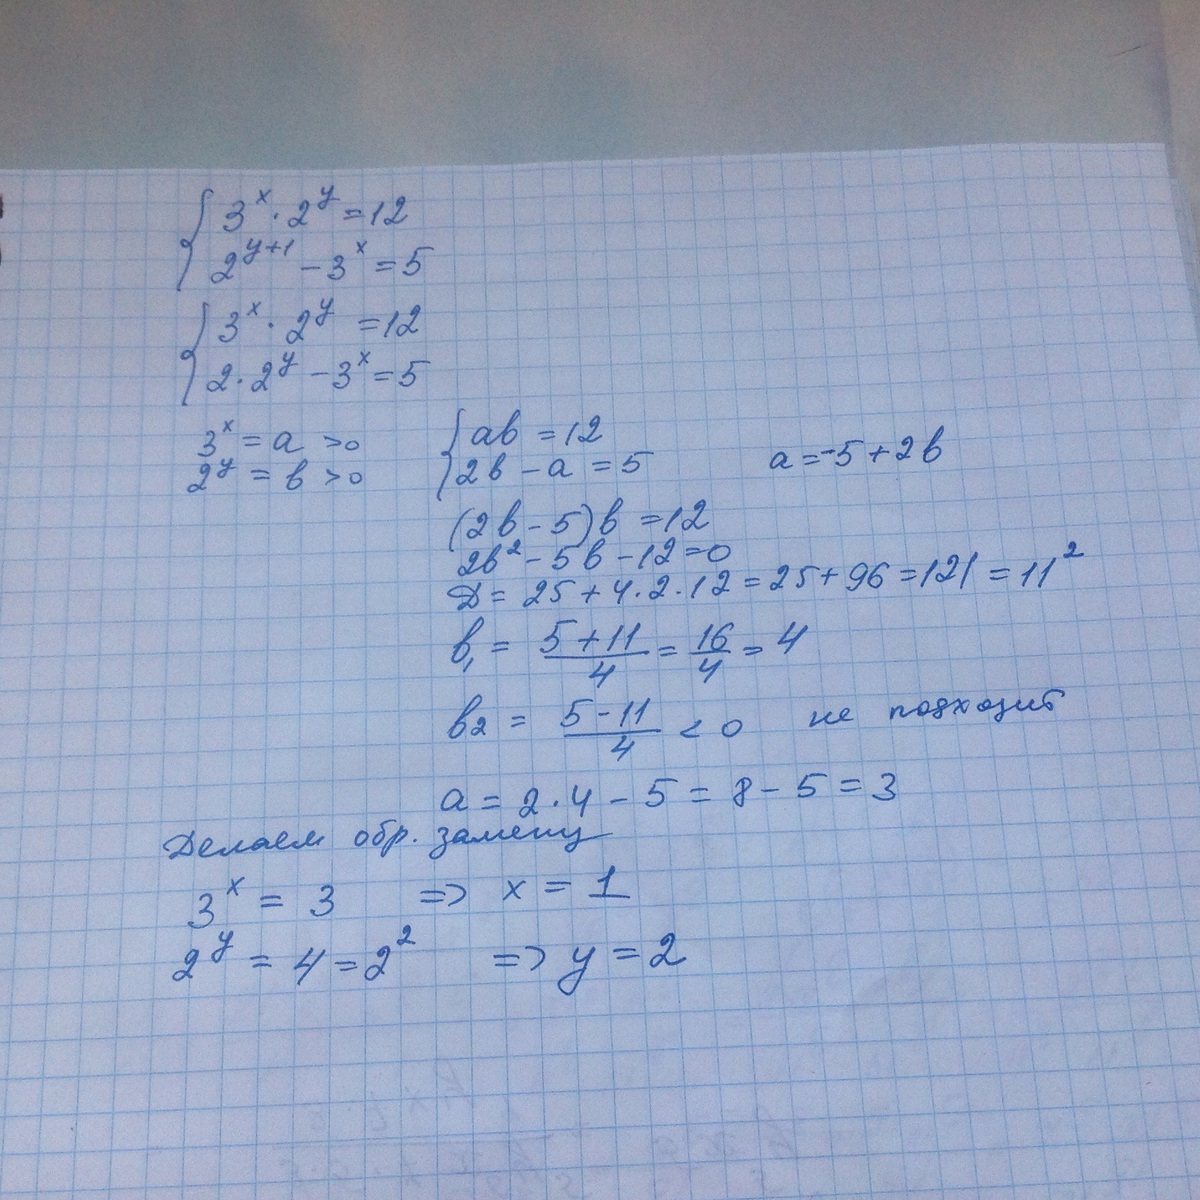 { 3^x · 2^y = 12
2^(y+1) - 3^x = 5
{ 3^x · 2^y = 12
2 · 2^y - 3^x = 5
3^x = a >0
2^y = в >0
{ aв = 12
2в - a = 5
a = -5 + 2в
(2в - 5)в = 12
2в² - 5в - 12 = 0
Д = 25 + 4·2·12 = 25 + 96 = 121 = 11²
в₁ = (5+11)/4 = 16/4 = 4
в₂ = (5-11)/4 < 0 не подходит
a = 2·4 - 5 = 8 - 5 = 3
Делаем обр. замену
3^x = 3 => x = 1
2^y = 4 = 2² => y = 2